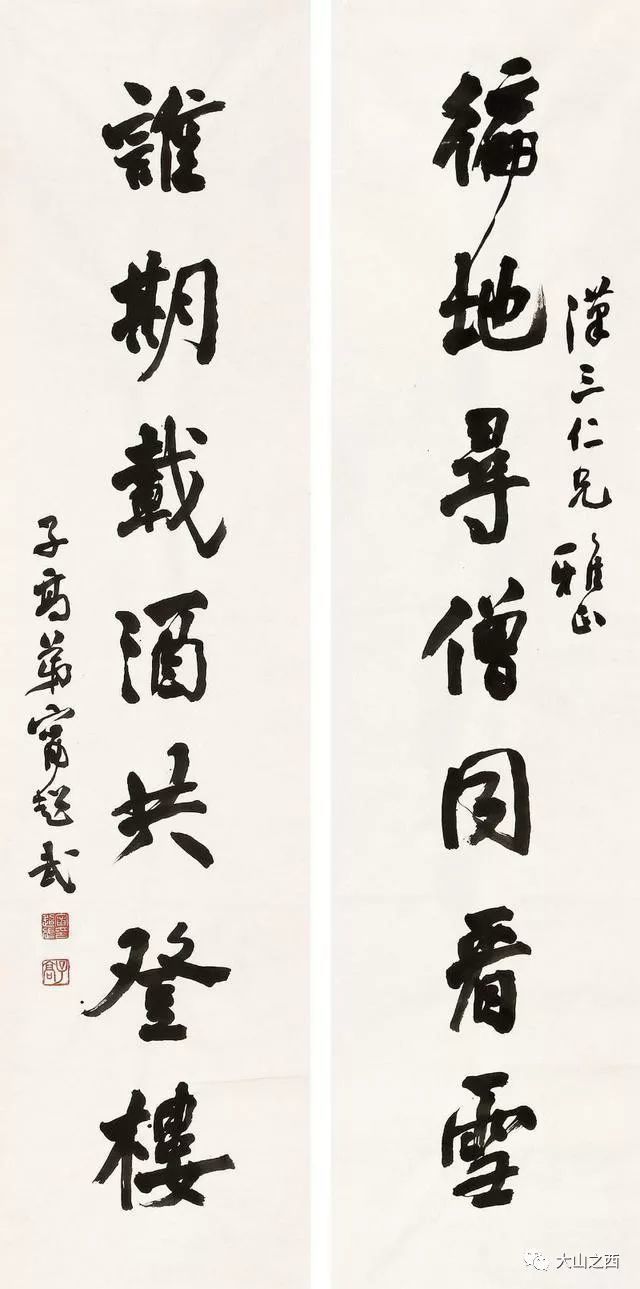 漢三仁兄雅正
徧地尋僧同看雪
誰期載酒共登樓
子高弟甯超武
子高
大山之西